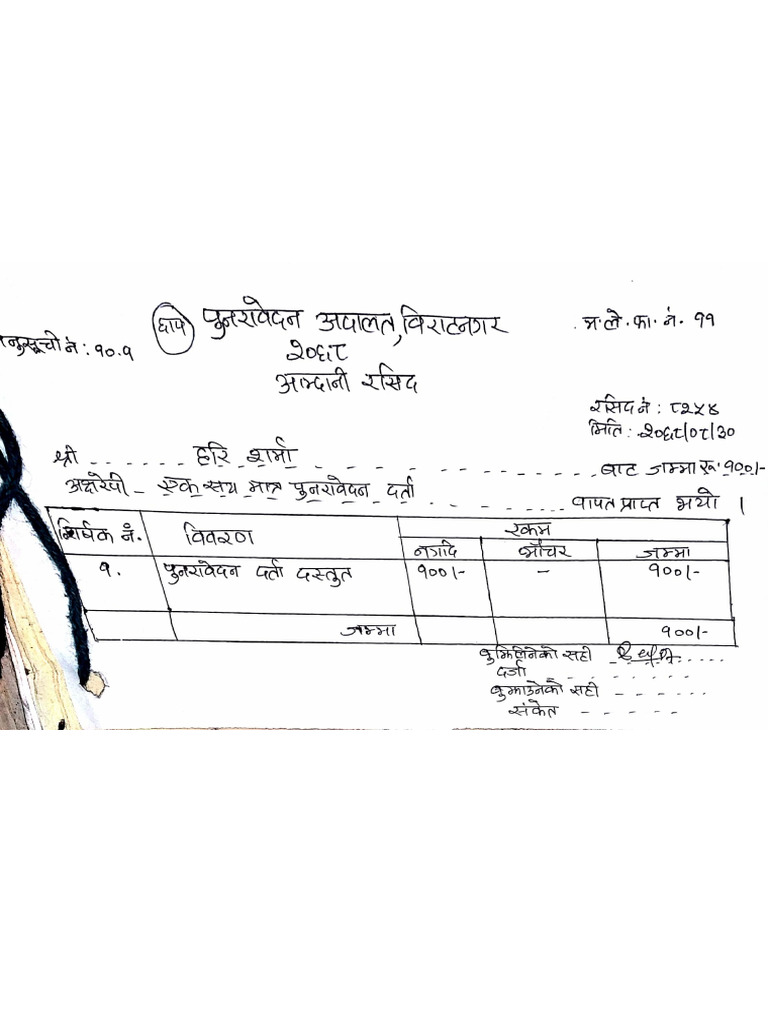 छाप पुनरावेदन अदालत, विराटनगर म.ले.फा.नं. ११
नुसूची नं: १०.१
२०६८
आम्दानी रसिद
रसिद नं: ८२५४
मिति: २०६८/०८/३०
श्री ------ हरि शर्मा -------------------- बाट जम्मा रू १००।-
अक्षेरेपी - एक सय मात्र पुनरावेदन दर्ता . - - - - - ..... वापत प्राप्त भयो ।
शिर्षक नं. विवरण रकम
नगदि भौचर जम्मा
१. पुनरावेदन दर्ता दस्तुत १००।- - १००।-
जम्मा १००।-
बुझिलिनेको सही
दर्जा - - - - - -
बुझाउनेको सही - - - - - -
संकेत - - - - -